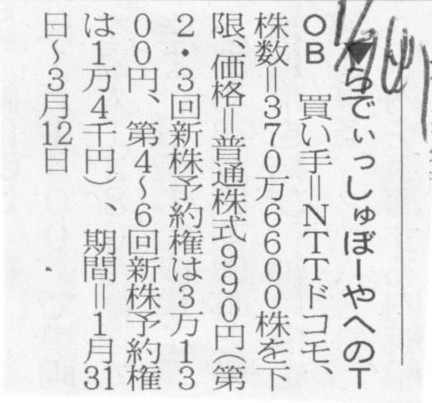 ▼らでぃっしゅぼーやへのT
OB 買い手=NTTドコモ、
株数=370万6600株を下
限、価格=普通株式990円(第
2・3回新株予約権は3万13
00円、第4~6回新株予約権
は1万4千円)、期間=1月31
日~3月12日